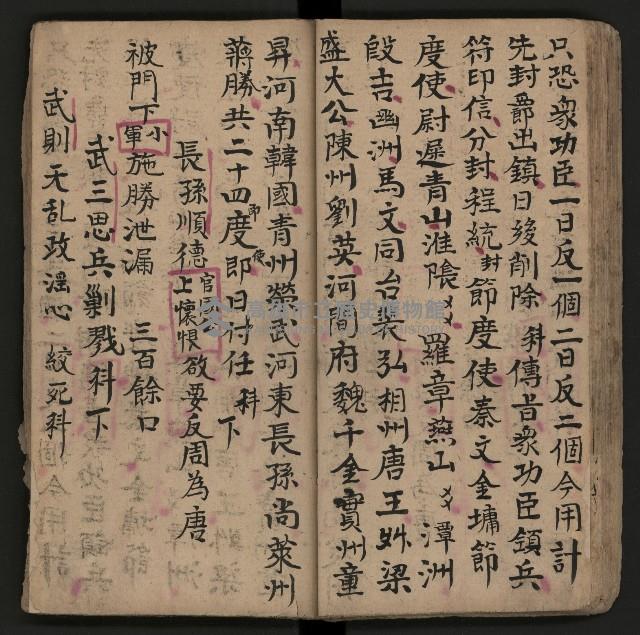 只恐衆功臣一日反一個二日反二個今用計
先封爵出鎮日後削除 科傳旨衆功臣鎮兵
符印信分封程統封節度使秦文金墉節
度使尉遲青山淮陽 羅章燕山 潭洲
段吉幽洲馬文同台裴弘相州唐王 梁
盛大公陳州劉英河間府魏千金實州童
昇河南韓國青州榮武河東長孫尚萊州
蔣勝共二十四度即使即日付任 科下
長孫順德官居上懷恨欲要反周為唐
被門下小軍施勝泄漏 三百餘口
武三思兵剿戮科下
武則天乱政滛心 絞死科
高雄市立歷史博物館